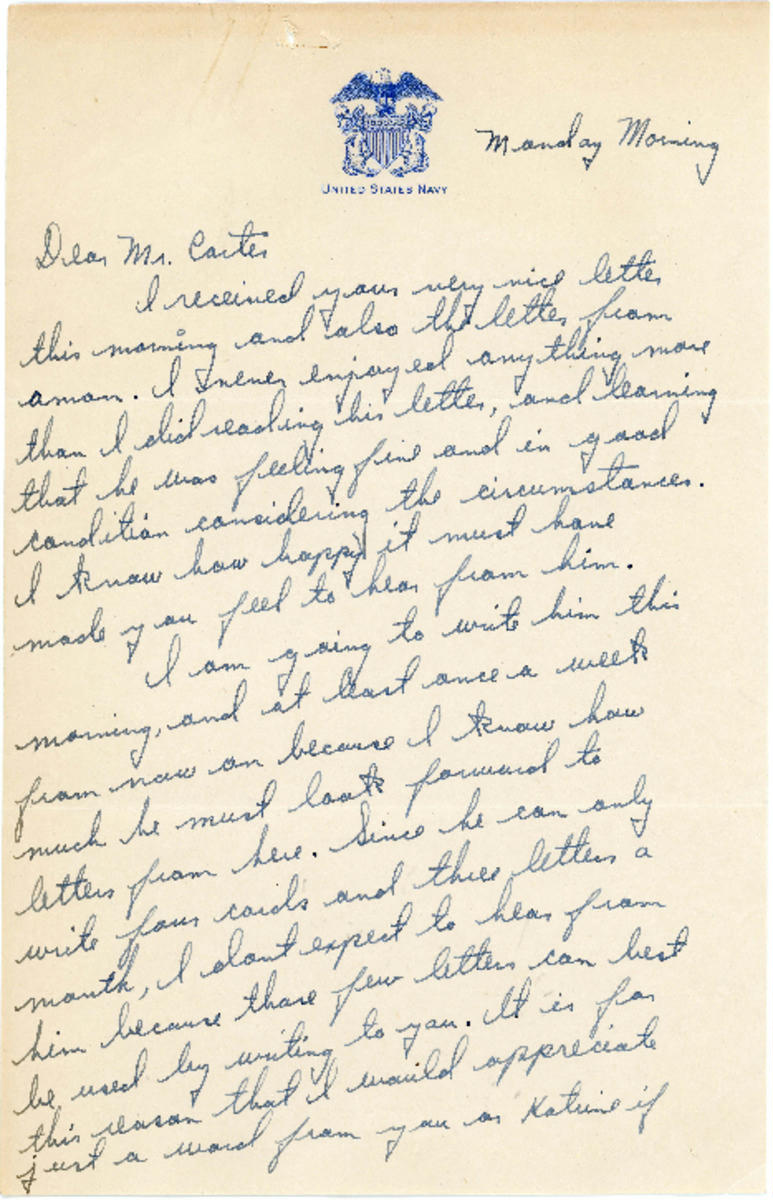 UNITED STATES NAVY
Monday Morning
Dear Mr. Carter
I received your very nice letter
this morning and also the letter from
amon. I never enjoyed anything more
than I did reading his letter, and learning
that he was feeling fine and in good
condition considering the circumstances.
I know how happy it must have
made you feel to hear from him.
I am going to write him this
morning, and at least once a week
from now on because I know how
much he must look forward to
letters from here. Since he can only
write four cards and three letters a
month, I dont expect to hear from
him because those few letters can best
be used by writing to you. It is for
this reason that I would appreciate
just a word from you or Katrine if